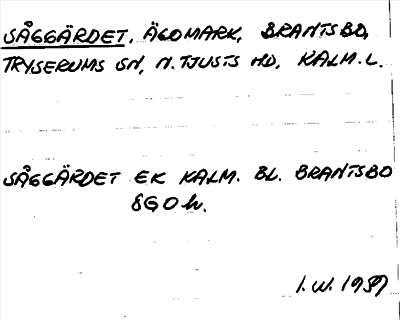 SÅGGÄRDET, ÄGOMARK, BRANTSBO,
TRYSERUMS SN, N. TJUSTS HD, KALM. L.
SÅGGÄRDET EK KALM. BL. BRANTSBO
8G0h.
I. W. 1939